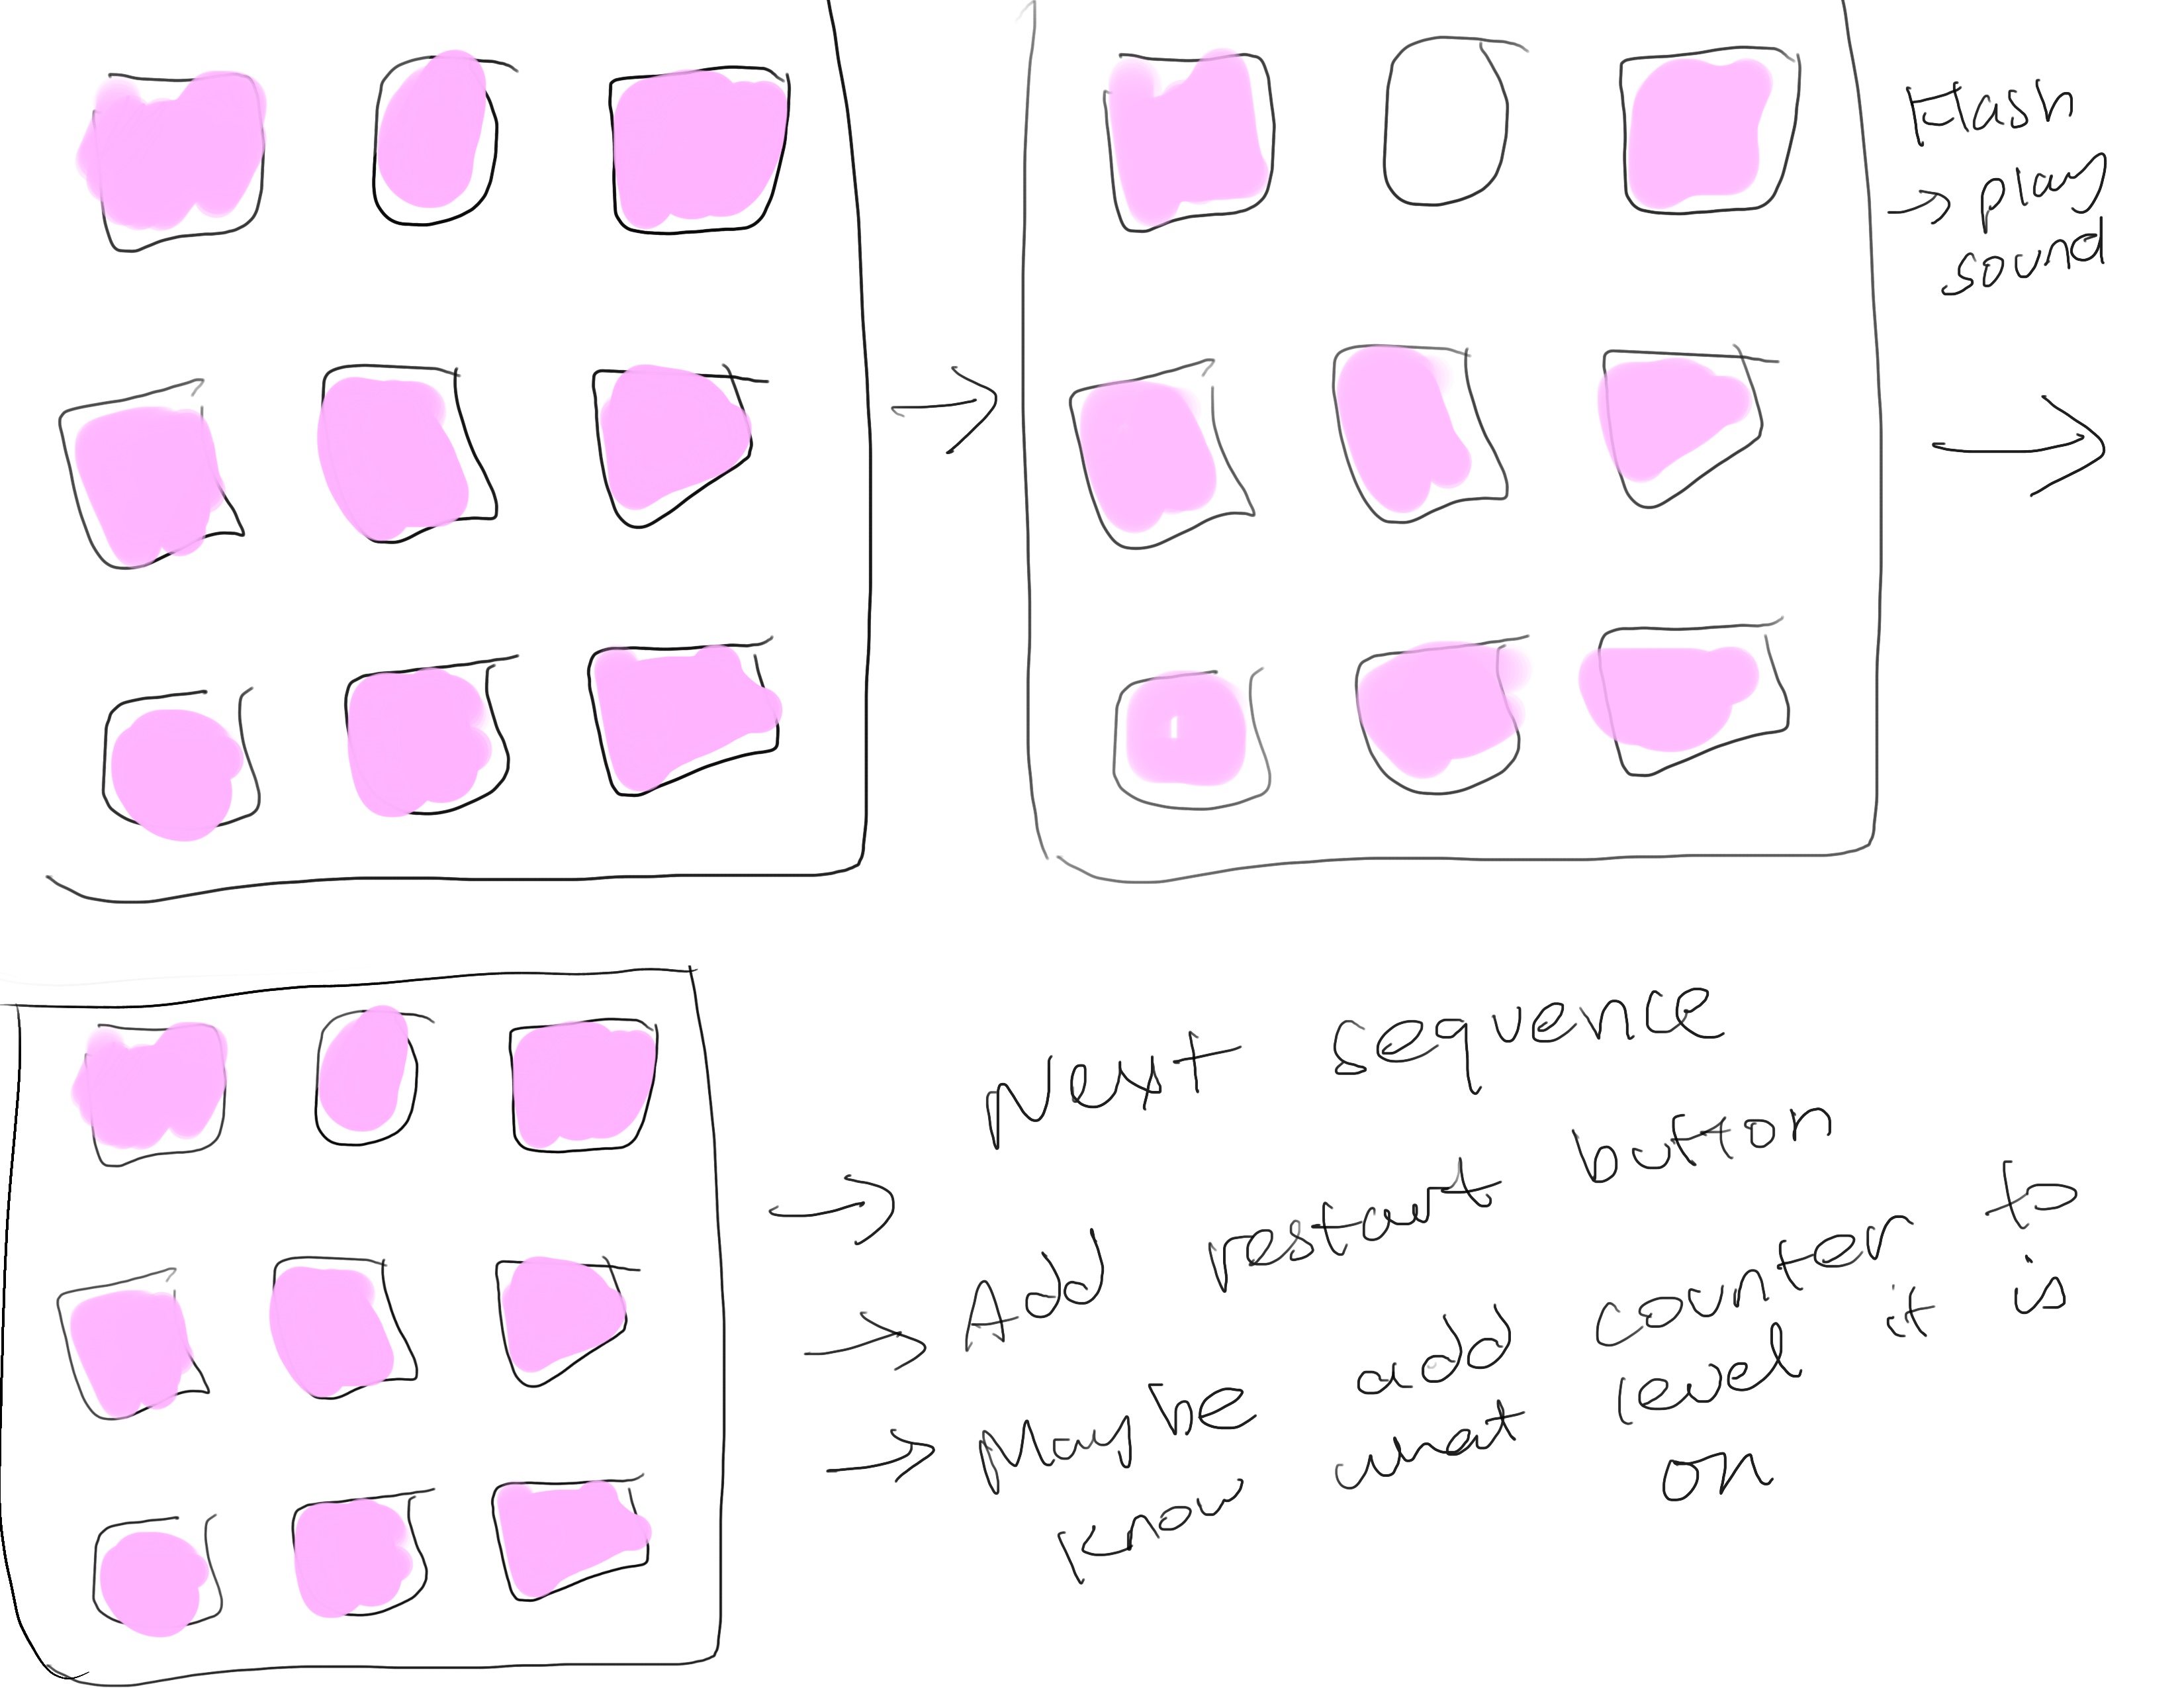 Flash
→ play
sound
→ Next sequence
→ Add restart button
→ Maybe add counter to
know what level it is
on